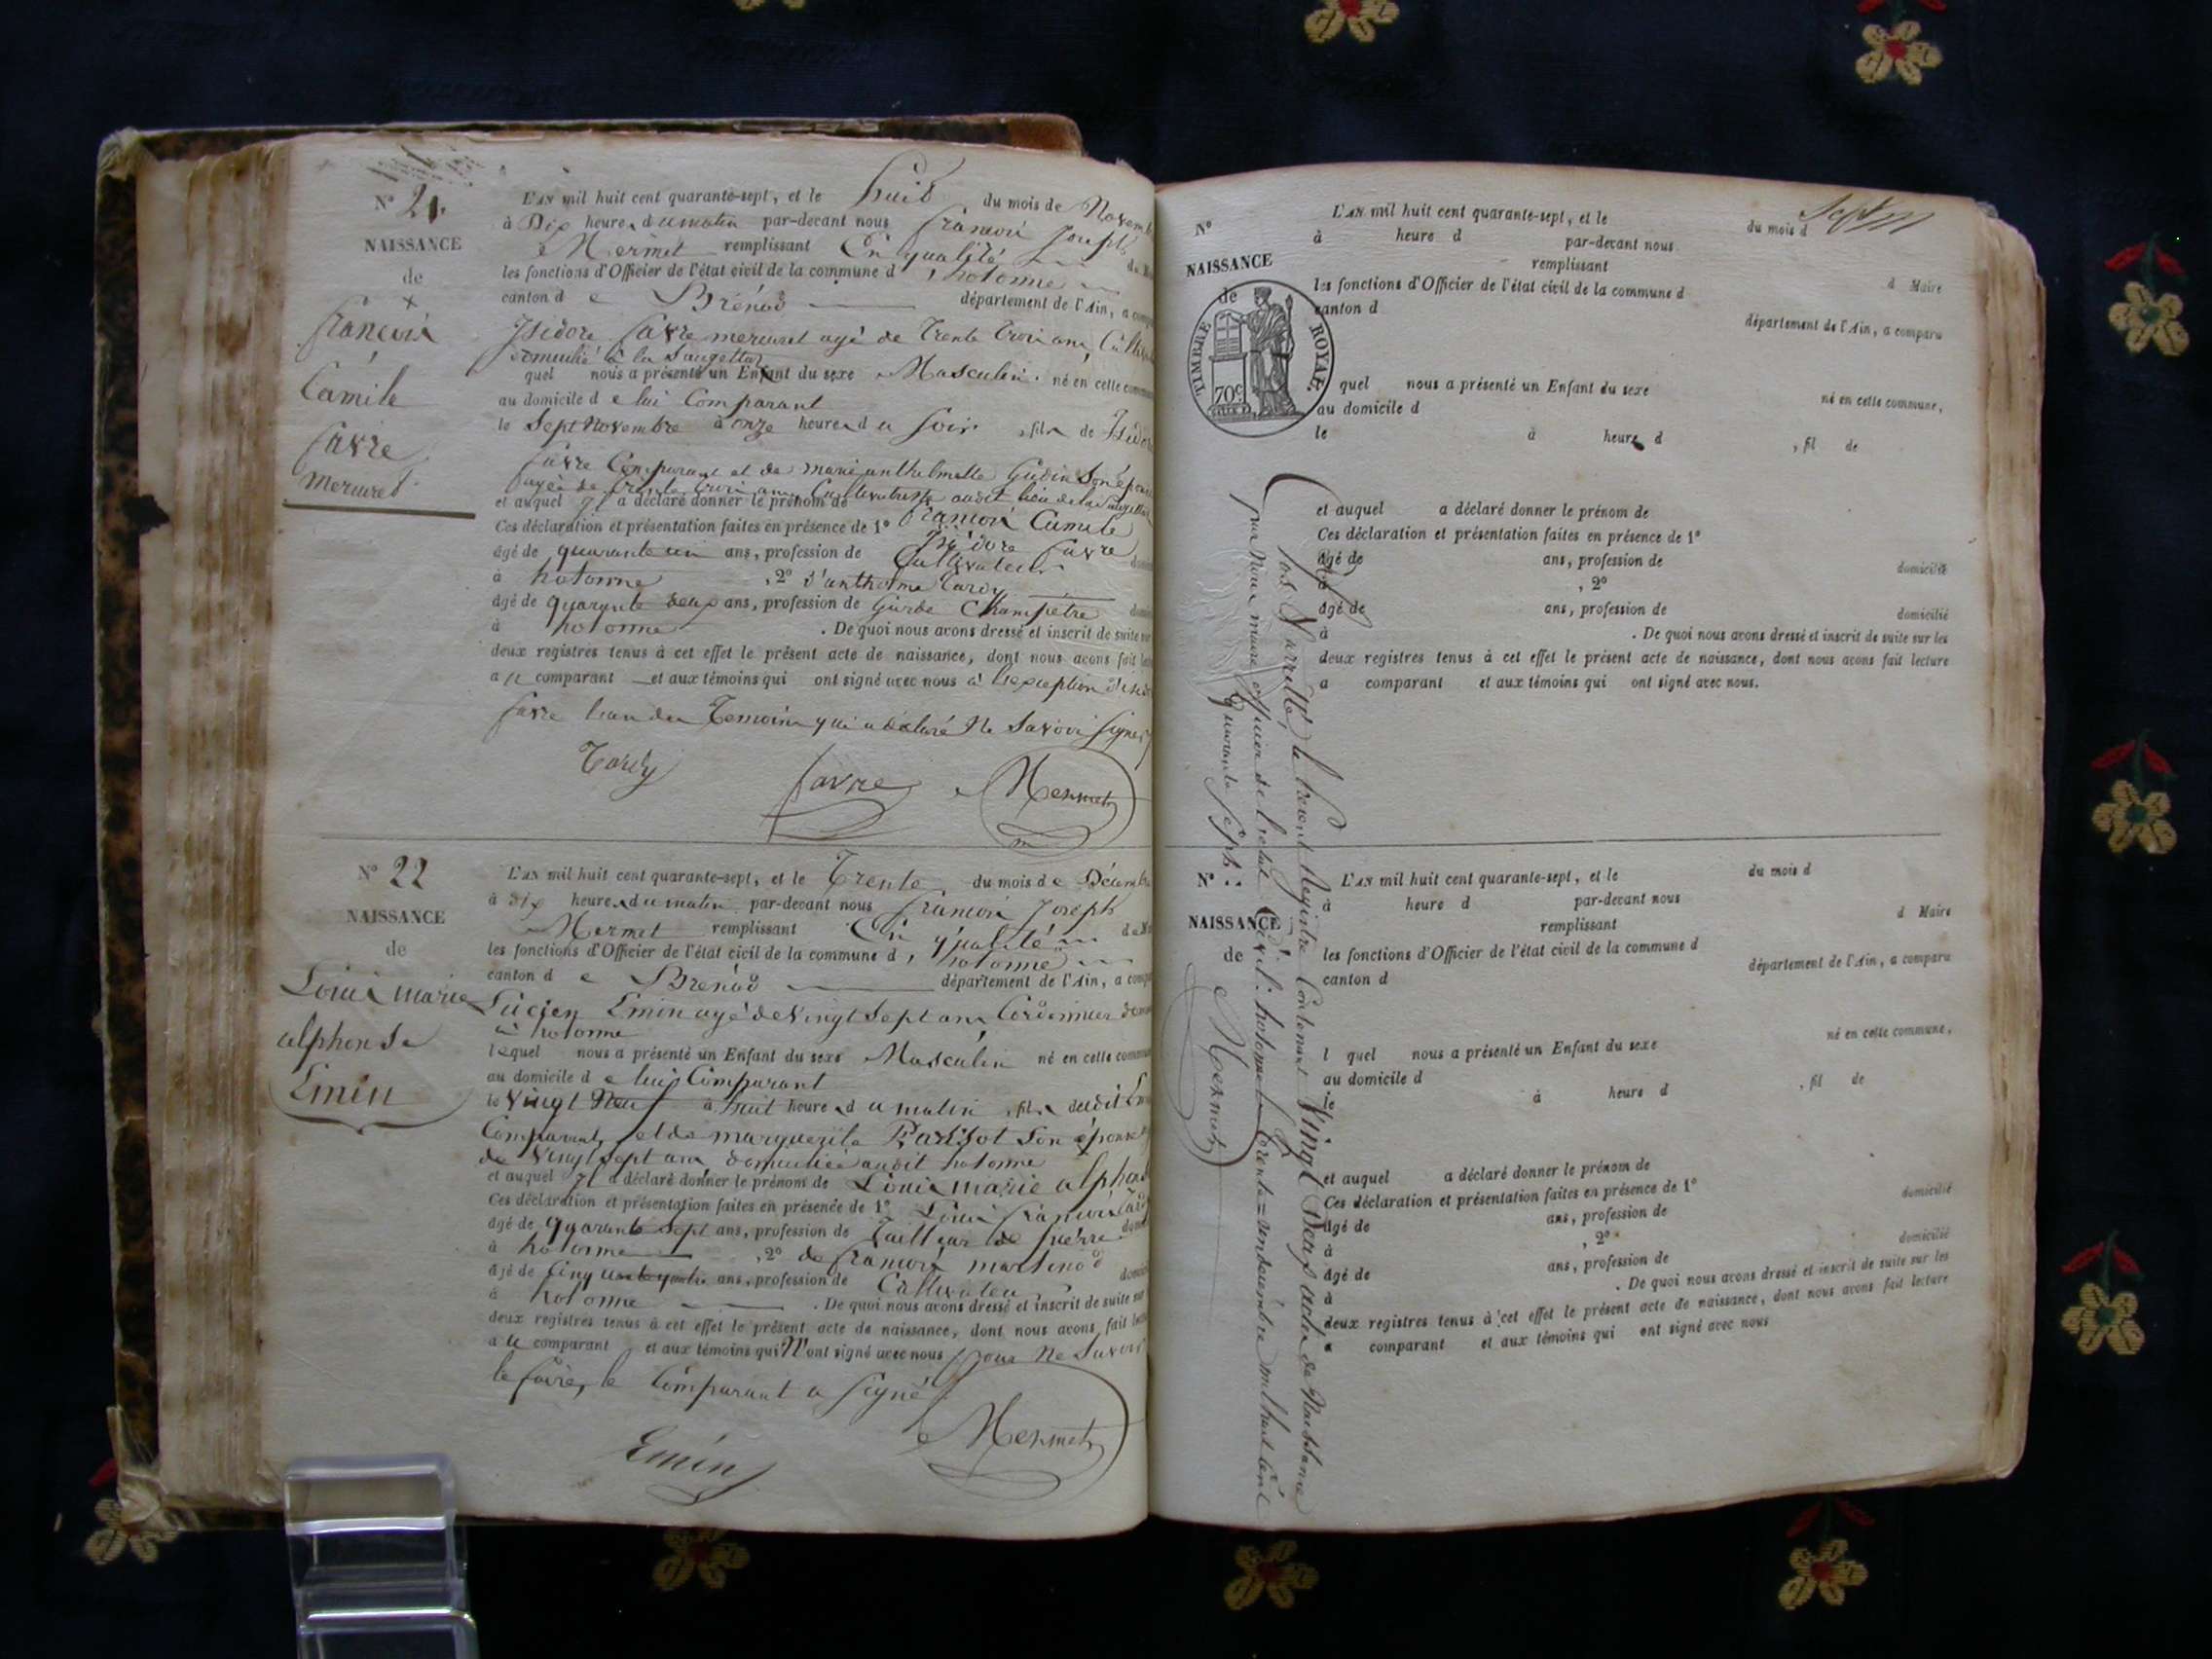 N° 21.
NAISSANCE
de
françois
Camile
favre
mercuret
L'AN mil huit cent quarante-sept, et le huit du mois de Novemb
à Dix heures du matin par-devant nous françois Joseph
Mermet remplissant En qualité de M
les fonctions d'Officier de l'état civil de la commune d'hotonne
canton de Brénod département de l'Ain, a compa
Isidore favre mercuret agé de trente trois ans, Cultiva
domicilié à la Saugettaz
quel nous a présenté un Enfant du sexe Masculin né en cette commun
au domicile de lui Comparant
le Sept Novembre à onze heures du soir, fils de Isidor
favre Comparant et de marie anthelmette Gudin Son épous
agée de trente trois ans Cultivatrice audit lieu de la Saugettaz
et auquel Il a déclaré donner le prénom de françois Camile
Ces déclaration et présentation faites en présence de 1° Isidore favre
âgé de quarante un ans, profession de Cultivateur
à hotonne, 2° d'anthelme tardy
âgé de quarante deux ans, profession de Garde Champêtre domici
à hotonne. De quoi nous avons dressé et inscrit de suite sur
deux registres tenus à cet effet le présent acte de naissance, dont nous avons fait lect
au comparant et aux témoins qui ont signé avec nous à l'exception d'isidor
favre l'un des temoins qui a déclaré Ne Savoir signer
Tardy favre Mermet
N° 22
NAISSANCE
de
Louis marie
alphonse
Emin
L'AN mil huit cent quarante-sept, et le trente, du mois de Décemb
à dix heures du matin par-devant nous françois Joseph
Mermet remplissant En qualité de M
les fonctions d'Officier de l'état civil de la commune d'hotonne
canton de Brénod département de l'Ain, a compa
Lucien Emin agé de Vingt Sept ans Cordonnier dom
à hotonne
lequel nous a présenté un Enfant du sexe Masculin né en cette commun
au domicile de lui Comparant
le Vingt Neuf à huit heures du matin, fils dudit Em
Comparant, et de marguerite Son épouse
de Vingt sept ans domiciliée audit hotonne
et auquel Il a déclaré donner le prénom de Louis marie alphons
Ces déclaration et présentation faites en présence de 1° Louis françois
âgé de quarante Sept ans, profession de tailleur de pierre dom
à hotonne, 2° de françois martinod
âgé de Cinquante quatre ans, profession de Cultivateur domici
à hotonne. De quoi nous avons dressé et inscrit de suite sur
deux registres tenus à cet effet le présent acte de naissance, dont nous avons fait lect
au comparant et aux témoins qui N'ont signé avec nous pour Ne Savoir
le faire, le Comparant a signé
Emin Mermet
N°
NAISSANCE
de
TIMBRE ROYAL
70c
L'AN mil huit cent quarante-sept, et le du mois d
à heure d par-devant nous
remplissant d Maire
les fonctions d'Officier de l'état civil de la commune d
canton d département de l'Ain, a comparu
quel nous a présenté un Enfant du sexe né en cette commune,
au domicile d
le à heure d, fil de
et auquel a déclaré donner le prénom de
Ces déclaration et présentation faites en présence de 1°
âgé de ans, profession de domicilié
à, 2°
âgé de ans, profession de domicilié
à. De quoi nous avons dressé et inscrit de suite sur les
deux registres tenus à cet effet le présent acte de naissance, dont nous avons fait lecture
a comparant et aux témoins qui ont signé avec nous.
Clos et arrêté le present Registre Contenant Vingt Deux actes de Naissance
par Nous maire officier de l'etat Civil d'hotonne le trente un decembre mil huit cent
quarante sept.
Mermet
N°
NAISSANCE
de
L'AN mil huit cent quarante-sept, et le du mois d
à heure d par-devant nous
remplissant d Maire
les fonctions d'Officier de l'état civil de la commune d
canton d département de l'Ain, a comparu
l quel nous a présenté un Enfant du sexe né en cette commune,
au domicile d
le à heure d, fil de
et auquel a déclaré donner le prénom de
Ces déclaration et présentation faites en présence de 1°
âgé de ans, profession de domicilié
à, 2°
âgé de ans, profession de domicilié
à. De quoi nous avons dressé et inscrit de suite sur les
deux registres tenus à cet effet le présent acte de naissance, dont nous avons fait lecture
a comparant et aux témoins qui ont signé avec nous